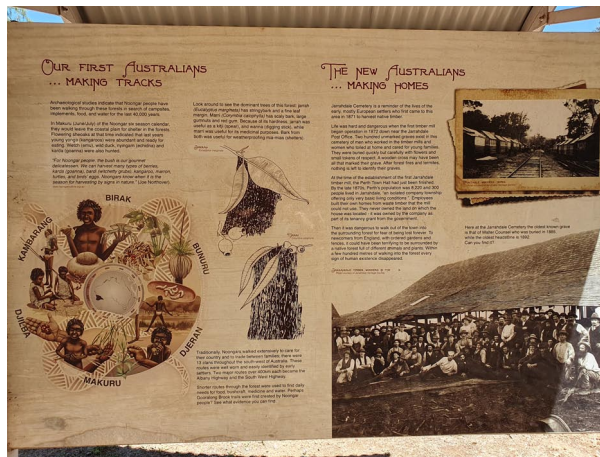 OUR FIRST AUSTRALIANS
... MAKING TRACKS
Archaeological studies indicate that Noongar people have
been walking through these forests in search of campsites,
implements, food, and water for the last 40,000 years.
In Makuru (June/July) of the Noongar six season calendar
they would leave the coastal plain for shelter in the forests.
Flowering at that time indicated that last years
young were abundant and ready for
eating. Wetch (emu), wild duck, nyingarn (echidna) and
karda (goanna) were also hunted.
"For Noongar people, the bush is our gourmet
delicatessen. We can harvest many types of berries,
karda (goanna), bardi (witchetty grubs), kangaroo, marron,
turtles, and birds' eggs. Noongars know when it is the
season for harvesting by signs in nature."
Look around to see the dominant trees of this forest; jarrah
(Eucalyptus marginata) has stringybark and a fine leaf
margin. Marri (Corymbia calophylla) has scaly bark, large
gumnuts and red gum. Because of its hardness, jarrah was
useful as a kitj (spear), and wanna (digging stick), while
marri was useful for its medicinal purposes. Bark from
both was useful for weatherproofing mia-mias (shelters).
BIRAK
BUNURU
DJERAN
MAKURU
DJILBA
KAMBARANG
Traditionally, Noongars walked extensively to care for
their country and to trade between families, there were
13 clans throughout the south-west of Australia. These
routes were well worn and easily identified by early
settlers. Two major routes over 400km each became the
Albany Highway and the South West Highway.
Shorter routes through the forest were used to find daily
needs for food, bushcraft, medicine and water. Perhaps
Gooralong Brook trails were first created by Noongar
people? See what evidence you can find.
THE NEW AUSTRALIANS
... MAKING HOMES
Jarrahdale Cemetery is a reminder of the lives of the
early, mostly European settlers who first came to this
area in 1871 to harvest native timber.
Life was hard and dangerous when the first timber mill
began operation in 1872 down near the Jarrahdale
Post Office. Two hundred unmarked graves exist in this
cemetery of men who worked in the timber mills and
women who toiled at home and cared for young families.
They were buried quickly but carefully with flowers and
small tokens of respect. A wooden cross may have been
all that marked their grave. After forest fires and termites,
nothing is left to identify their graves.
At the time of the establishment of the first Jarrahdale
timber mill, the Perth Town Hall had just been finished.
By the late 1870s, Perth's population was 8,220 and 300
people lived in Jarrahdale, "an isolated company township
offering only very basic living conditions". Employees
built their own homes from waste timber that the mill
could not use. They never owned the land on which the
house was located - it was owned by the company as
part of its tenancy grant from the government.
Then it was dangerous to walk out of the town into
the surrounding forest for fear of being lost forever. To
newcomers from England, with ordered gardens and
fences, it could have been terrifying to be surrounded by
a native forest full of different animals and plants. Within
a few hundred metres of walking into the forest every
sign of human existence disappeared.
Here at the Jarrahdale Cemetery the oldest known grave
is that of Walter Counsel who was buried in 1886,
while the oldest headstone is 1892.
Can you find it?